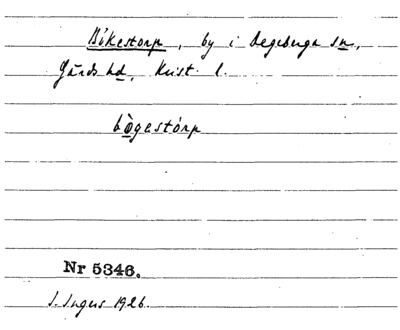 Bökestorp, by i Degeberga sn,
Gärds hd, Krist. l.
bögestórp
Nr 5346.
S. Ingers 1926.